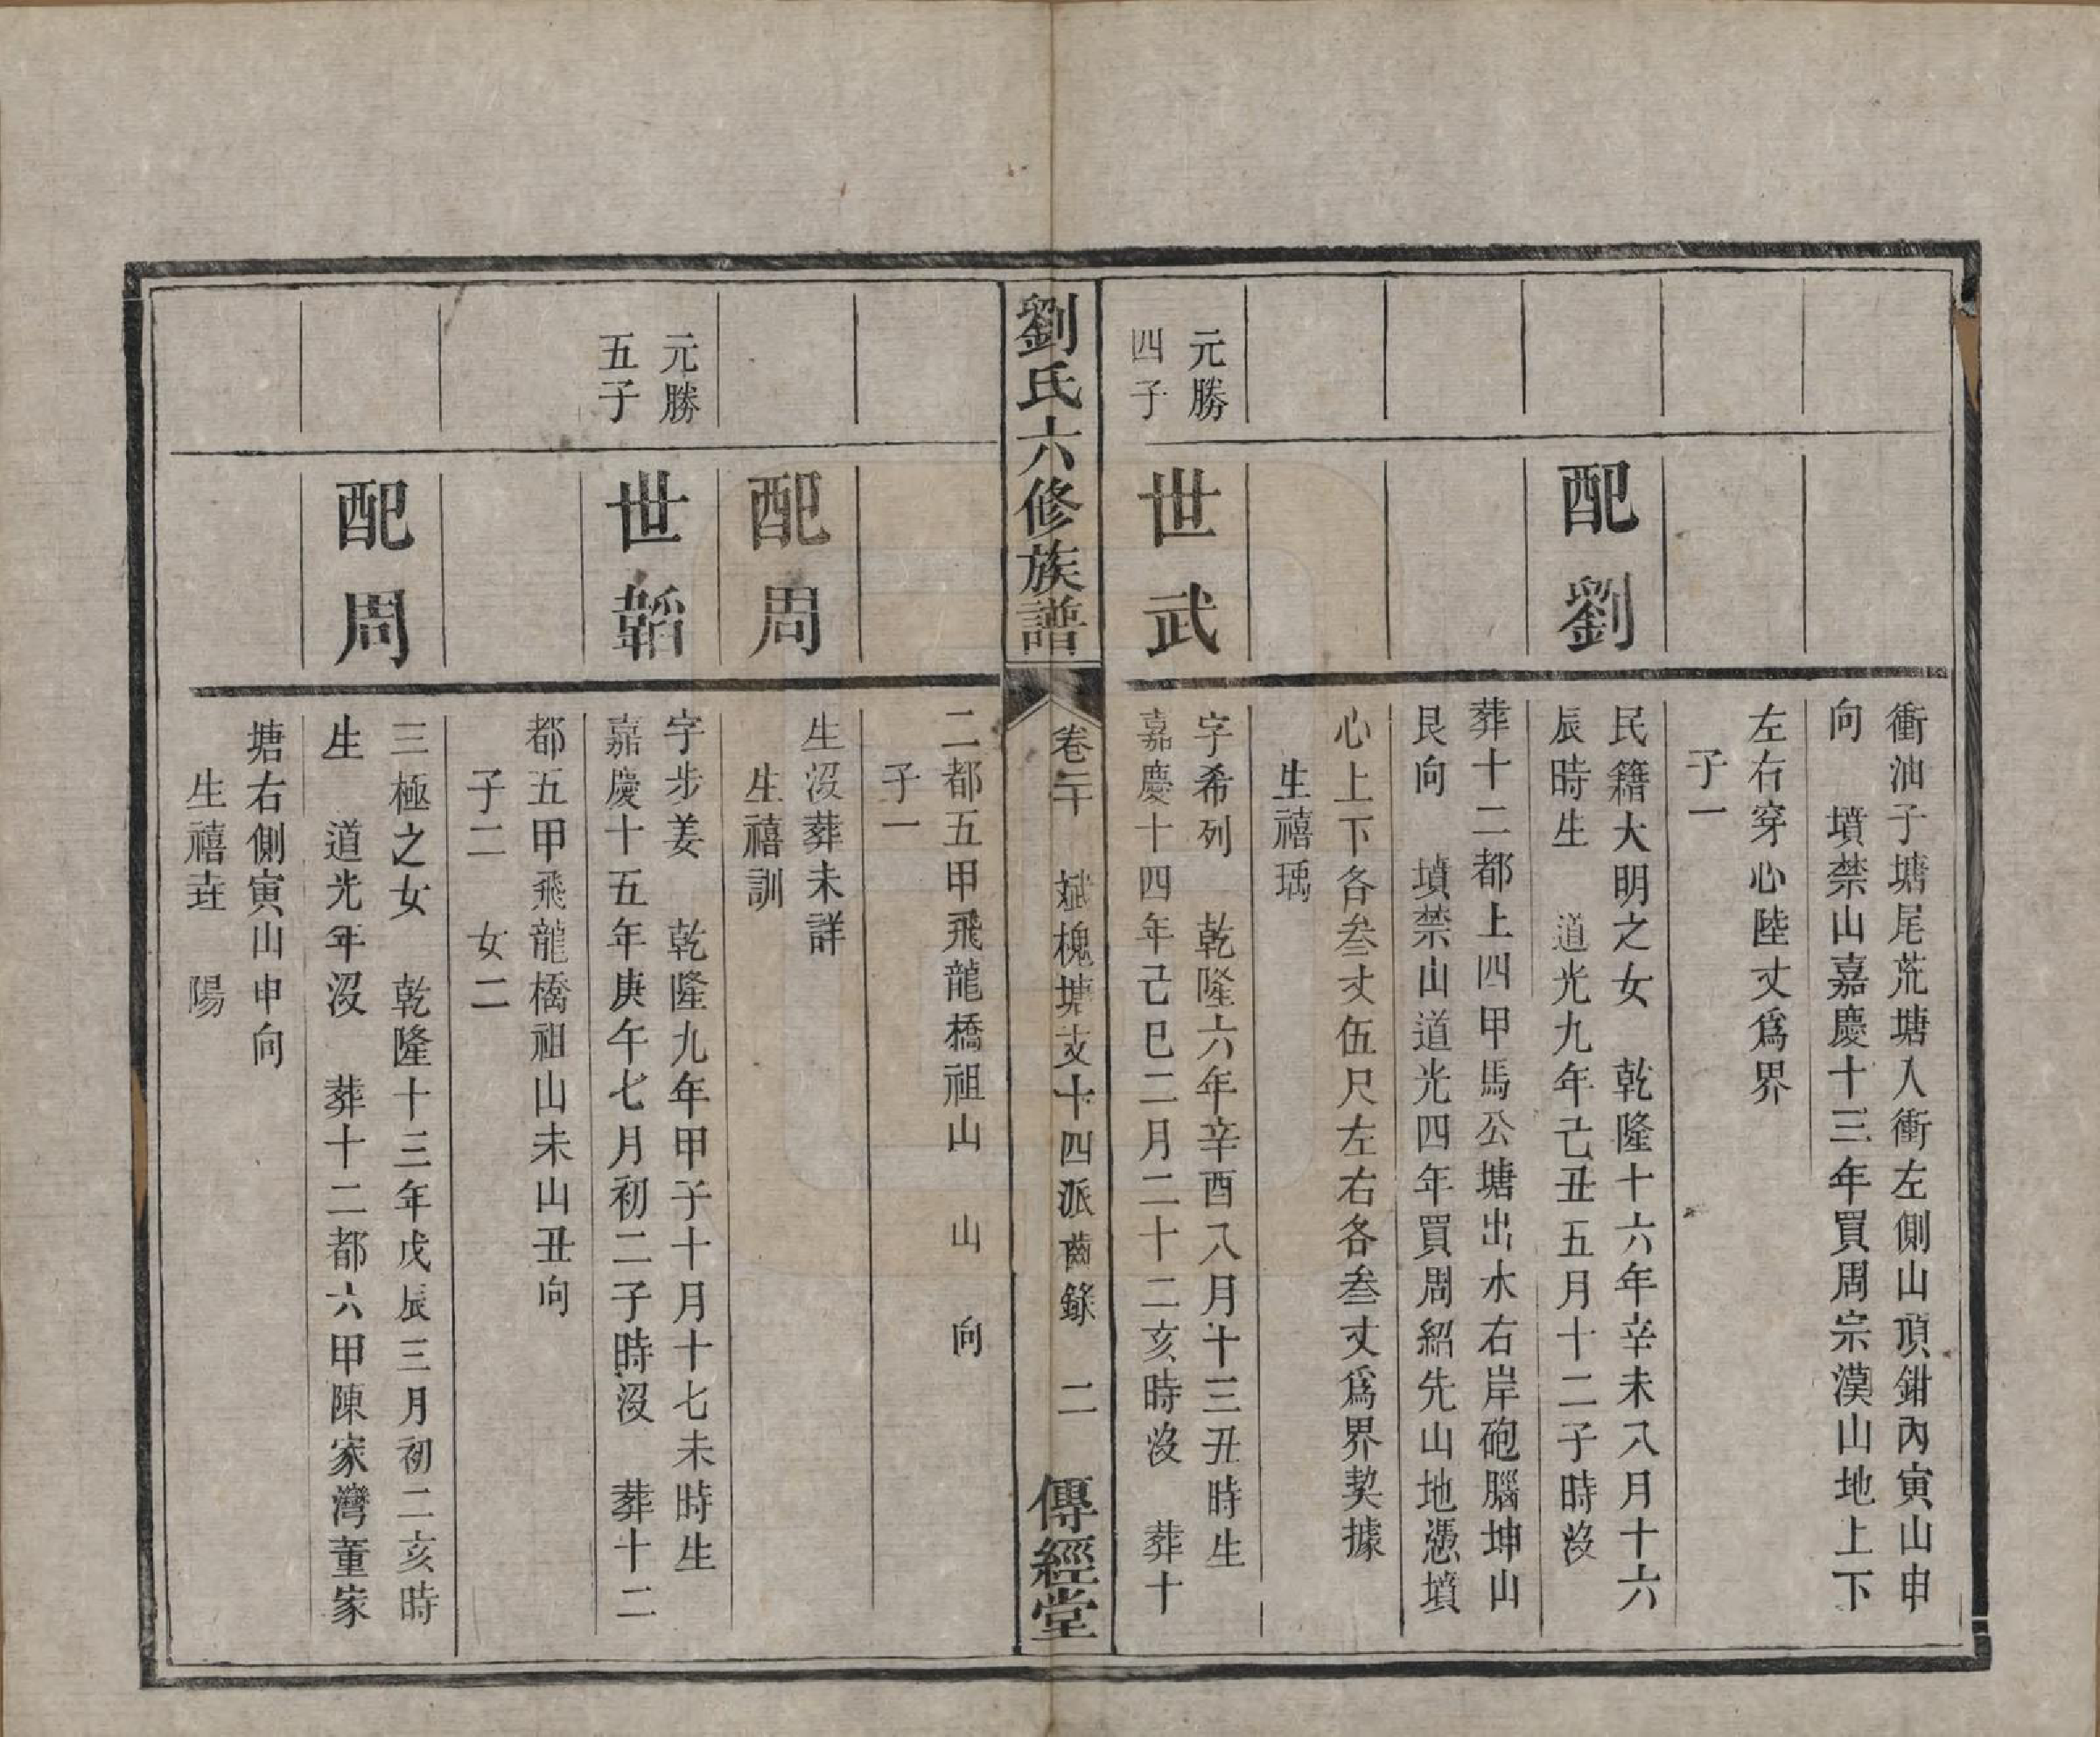 衝油子塘尾荒塘入衝左側山頂鉗內寅山申
向　墳禁山嘉慶十三年買周宗漠山地上下
左右穿心陸丈爲界
子一
配劉
民籍大明之女　乾隆十六年辛未八月十六
辰時生　道光九年己丑五月十二子時沒
葬十二都上四甲馬公塘出水右岸砲腦坤山
艮向　墳禁山道光四年買周紹先山地憑墳
心上下各叁丈伍尺左右各叁丈爲界契據
生禧瑀
元勝
四子
世武
字希列　乾隆六年辛酉八月十三丑時生
嘉慶十四年己巳二月二十二亥時沒　葬十
劉氏六修族譜
卷二十　斌槐塘支十四派齒錄　二
傳經堂
二都五甲飛龍橋祖山　山　向
子一
配周
生沒葬未詳
生禧訓
元勝
五子
世韜
字步姜　乾隆九年甲子十月十七未時生
嘉慶十五年庚午七月初二子時沒　葬十二
都五甲飛龍橋祖山未山丑向
子二　女二
配周
三極之女　乾隆十三年戊辰三月初二亥時
生　道光年沒　葬十二都六甲陳家灣董家
塘右側寅山申向
生禧垚　陽